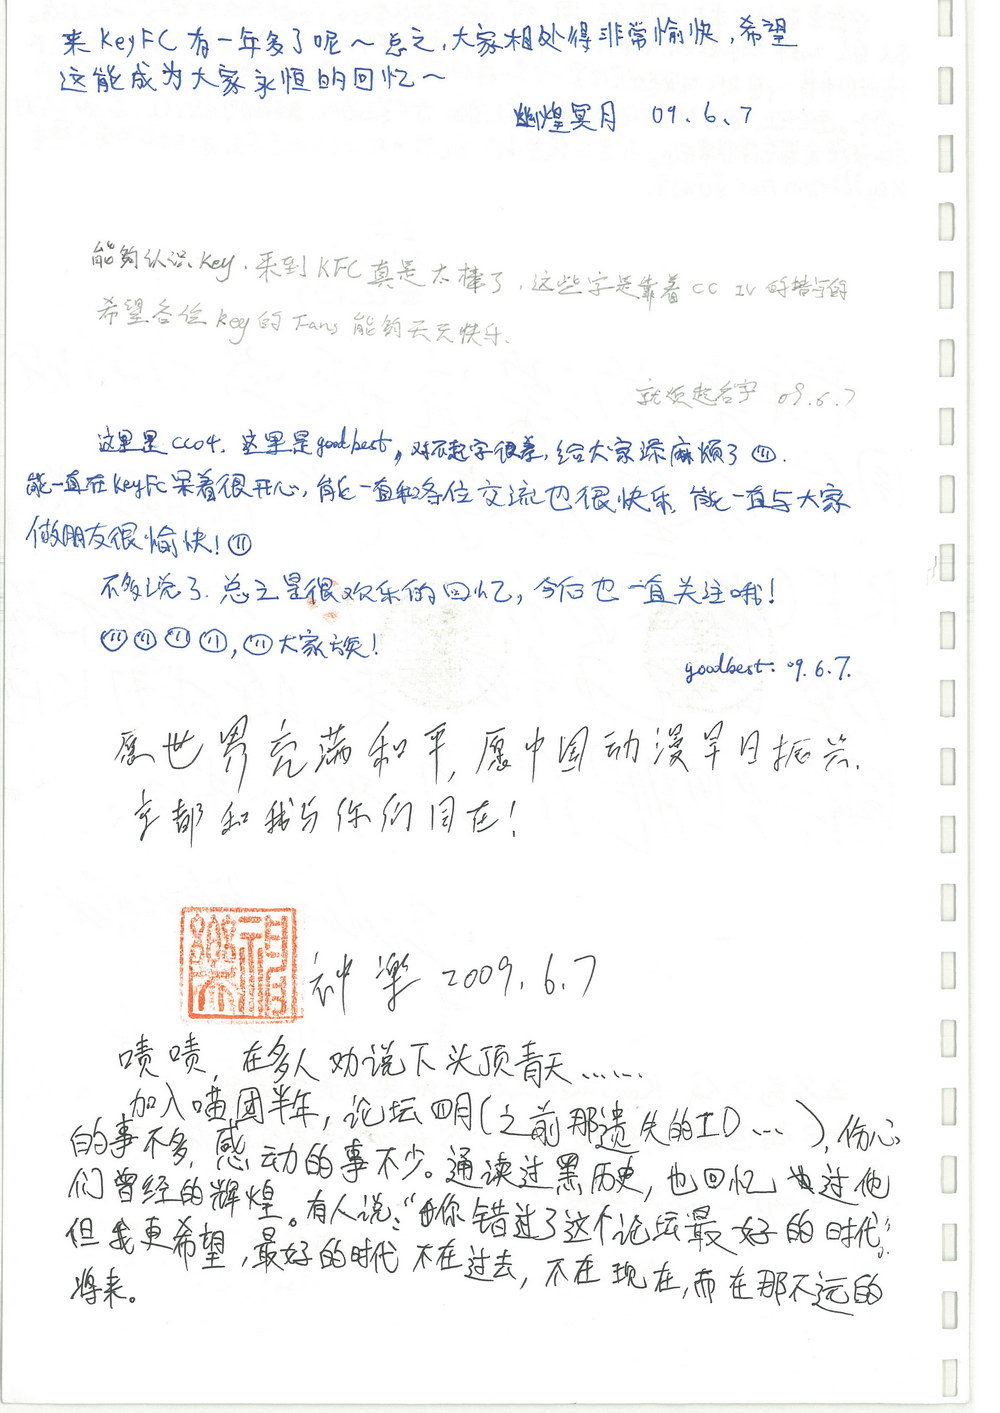 来KeyFC有一年多了呢～总之,大家相处得非常愉快,希望
这能成为大家永恒的回忆～
幽煌冥月 09.6.7
能够认识Key.来到KFC真是太棒了,这些字是靠着CC IV的
希望各位Key的Fans能够天天快乐.
09.6.7
这里是CC04.这里是goodbest,对不起字很差,给大家添麻烦了
能一直在KeyFC呆着很开心,能一直和各位交流也很快乐,能一直与大家
做朋友很愉快!
不多说了.总之是很欢乐的回忆,今后也一直关注哦!
,大家族!
goodbest. 09.6.7.
愿世界充满和平,愿中国动漫早日振兴.
京都和我与你们同在!
神樂 2009.6.7
啧啧,在多人劝说下头顶青天……
加入喵团半年,论坛四月(之前那遗失的ID…),伤心
的事不多,感动的事不少。通读过黑历史,也回忆过他
们曾经的辉煌。有人说:“你错过了这个论坛最好的时代”
但我更希望,最好的时代不在过去,不在现在,而在那不远的
将来。